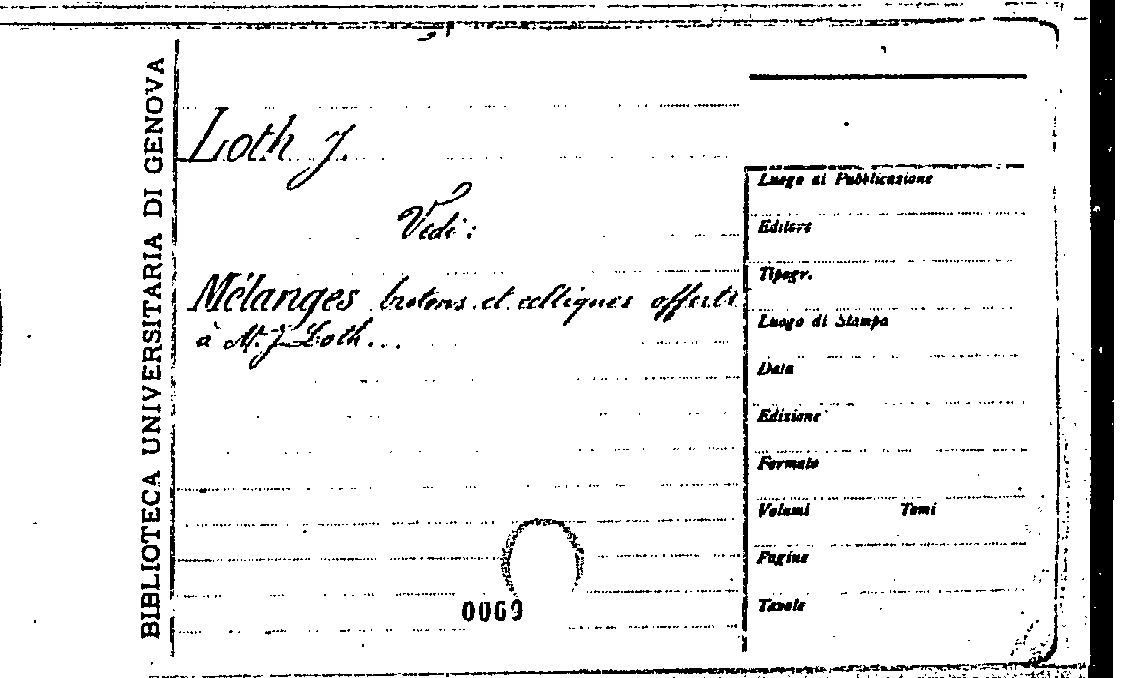 BIBLIOTECA UNIVERSITARIA DI GENOVA
Loth J.
Vedi:
Mélanges bretons et celtiques offerts
à M. J. Loth...
Luogo di Pubblicazione
Editore
Tipogr.
Luogo di Stampa
Data
Edizione
Formato
Volumi Tomi
Pagine
Tavole
0069